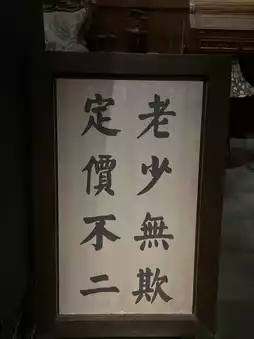 老少無欺
定價不二